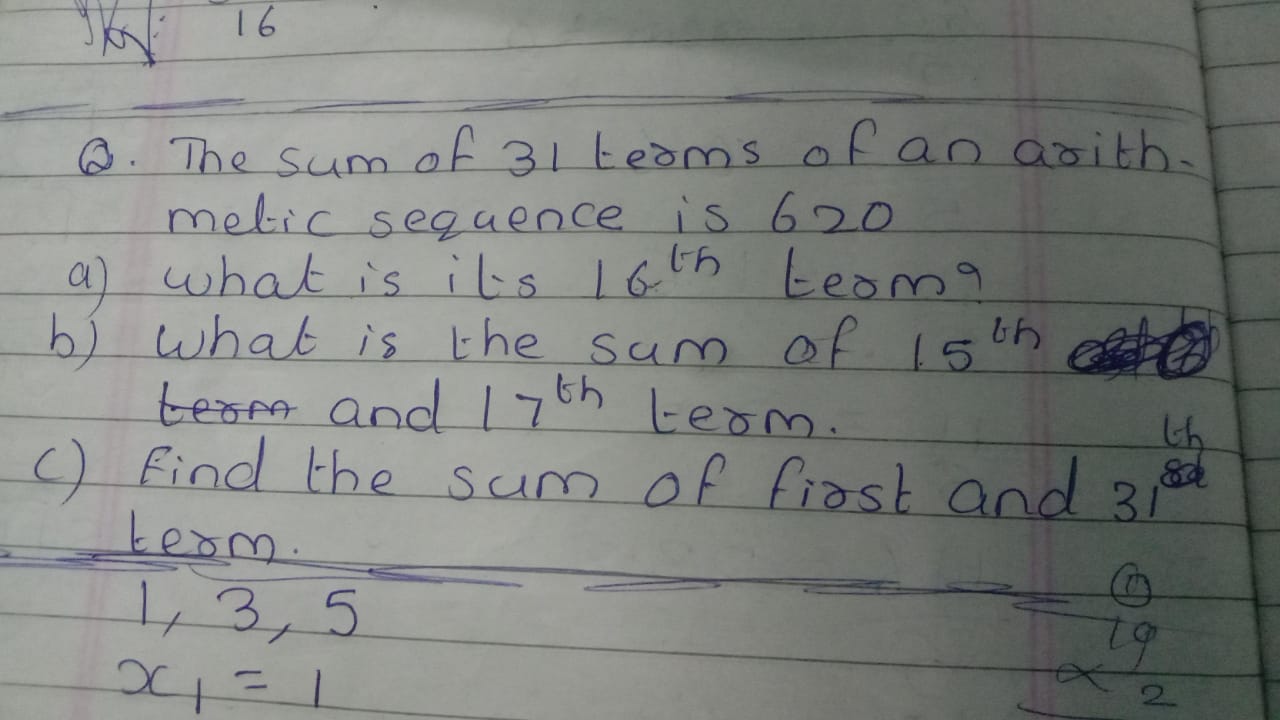 16
Q. The sum of 31 terms of an arith-
metic sequence is 620
a) what is its 16th term?
b) what is the sum of 15th
term and 17th term.
c) Find the sum of first and 31th
term.
1, 3, 5
x1 = 1
19
× 2